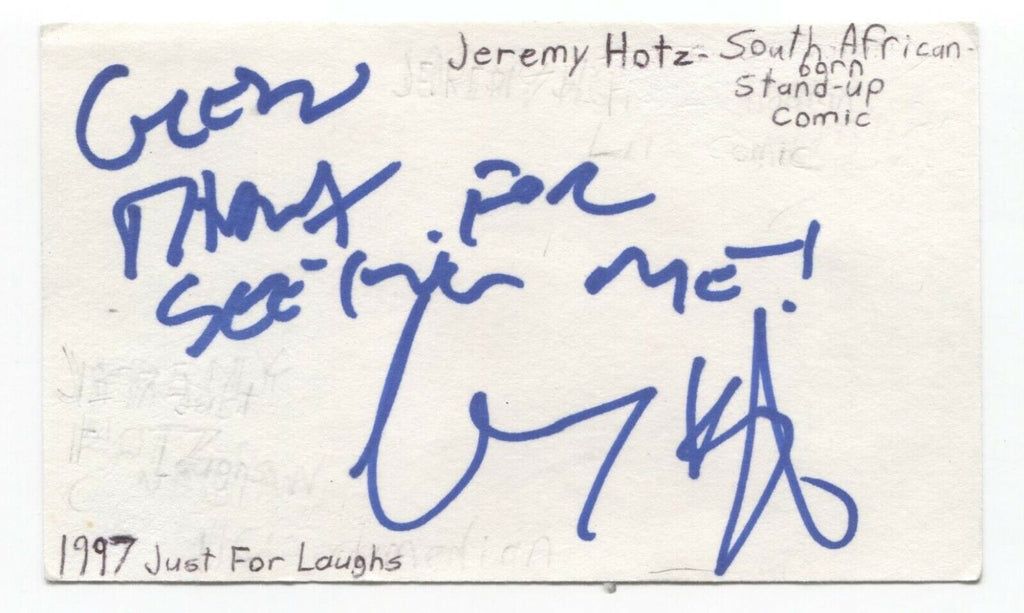 Jeremy Hotz- South African-
born
Stand-up
Comic
Glen
THANX FOR
SEEING ME!
1997 Just For Laughs